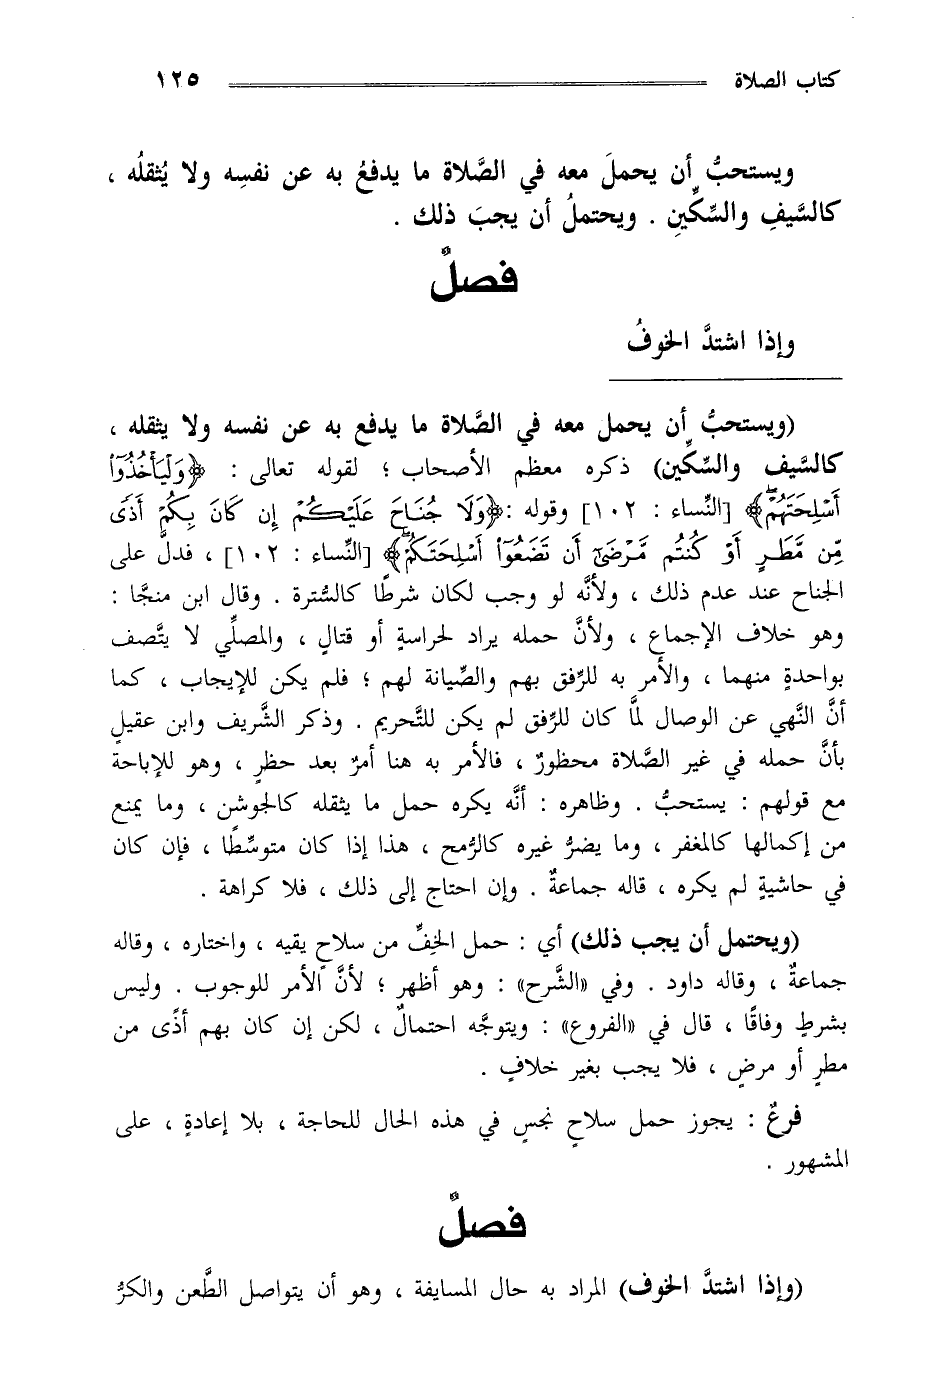 كتاب الصلاة ١٢٥
ويستحبُّ أن يحملَ معه في الصَّلاة ما يدفعُ به عن نفسِه ولا يُثقلُه ،
كالسَّيفِ والسِّكِّينِ . ويحتملُ أن يجبَ ذلك .
فصلٌ
وإذا اشتدَّ الخوفُ
(ويستحبُّ أن يحمل معه في الصَّلاة ما يدفع به عن نفسه ولا يثقله ،
كالسَّيف والسِّكِّين) ذكره معظم الأصحاب ؛ لقوله تعالى : ﴿وَلْيَأْخُذُوٓا۟
أَسْلِحَتَهُمْ ۖ﴾ [النِّساء : ١٠٢] وقوله : ﴿وَلَا جُنَاحَ عَلَيْكُمْ إِن كَانَ بِكُمْ أَذًى
مِّن مَّطَرٍ أَوْ كُنتُم مَّرْضَىٰٓ أَن تَضَعُوٓا۟ أَسْلِحَتَكُمْ ۖ﴾ [النِّساء : ١٠٢] ، فدلَّ على
الجناح عند عدم ذلك ، ولأنَّه لو وجب لكان شرطًا كالسُّترة . وقال ابن منجَّا :
وهو خلاف الإجماع ، ولأنَّ حمله يراد لحراسةٍ أو قتالٍ ، والمصلِّي لا يتَّصف
بواحدةٍ منهما ، والأمر به للرِّفق بهم والصِّيانة لهم ؛ فلم يكن للإيجاب ، كما
أنَّ النَّهي عن الوصال لمَّا كان للرِّفق لم يكن للتَّحريم . وذكر الشَّريف وابن عقيلٍ
بأنَّ حمله في غير الصَّلاة محظورٌ ، فالأمر به هنا أمرٌ بعد حظرٍ ، وهو للإباحة
مع قولهم : يستحبُّ . وظاهره : أنَّه يكره حمل ما يثقله كالجوشن ، وما يمنع
من إكمالها كالمغفر ، وما يضرُّ غيره كالرُّمح ، هذا إذا كان متوسِّطًا ، فإن كان
في حاشيةٍ لم يكره ، قاله جماعةٌ . وإن احتاج إلى ذلك ، فلا كراهة .
(ويحتمل أن يجب ذلك) أي : حمل الخفِّ من سلاحٍ يقيه ، واختاره ، وقاله
جماعةٌ ، وقاله داود . وفي «الشَّرح» : وهو أظهر ؛ لأنَّ الأمر للوجوب . وليس
بشرطٍ وفاقًا ، قال في «الفروع» : ويتوجَّه احتمالٌ ، لكن إن كان بهم أذًى من
مطرٍ أو مرضٍ ، فلا يجب بغير خلافٍ .
فرعٌ : يجوز حمل سلاحٍ نجسٍ في هذه الحال للحاجة ، بلا إعادةٍ ، على
المشهور .
فصلٌ
(وإذا اشتدَّ الخوف) المراد به حال المسايفة ، وهو أن يتواصل الطَّعن والكرُّ